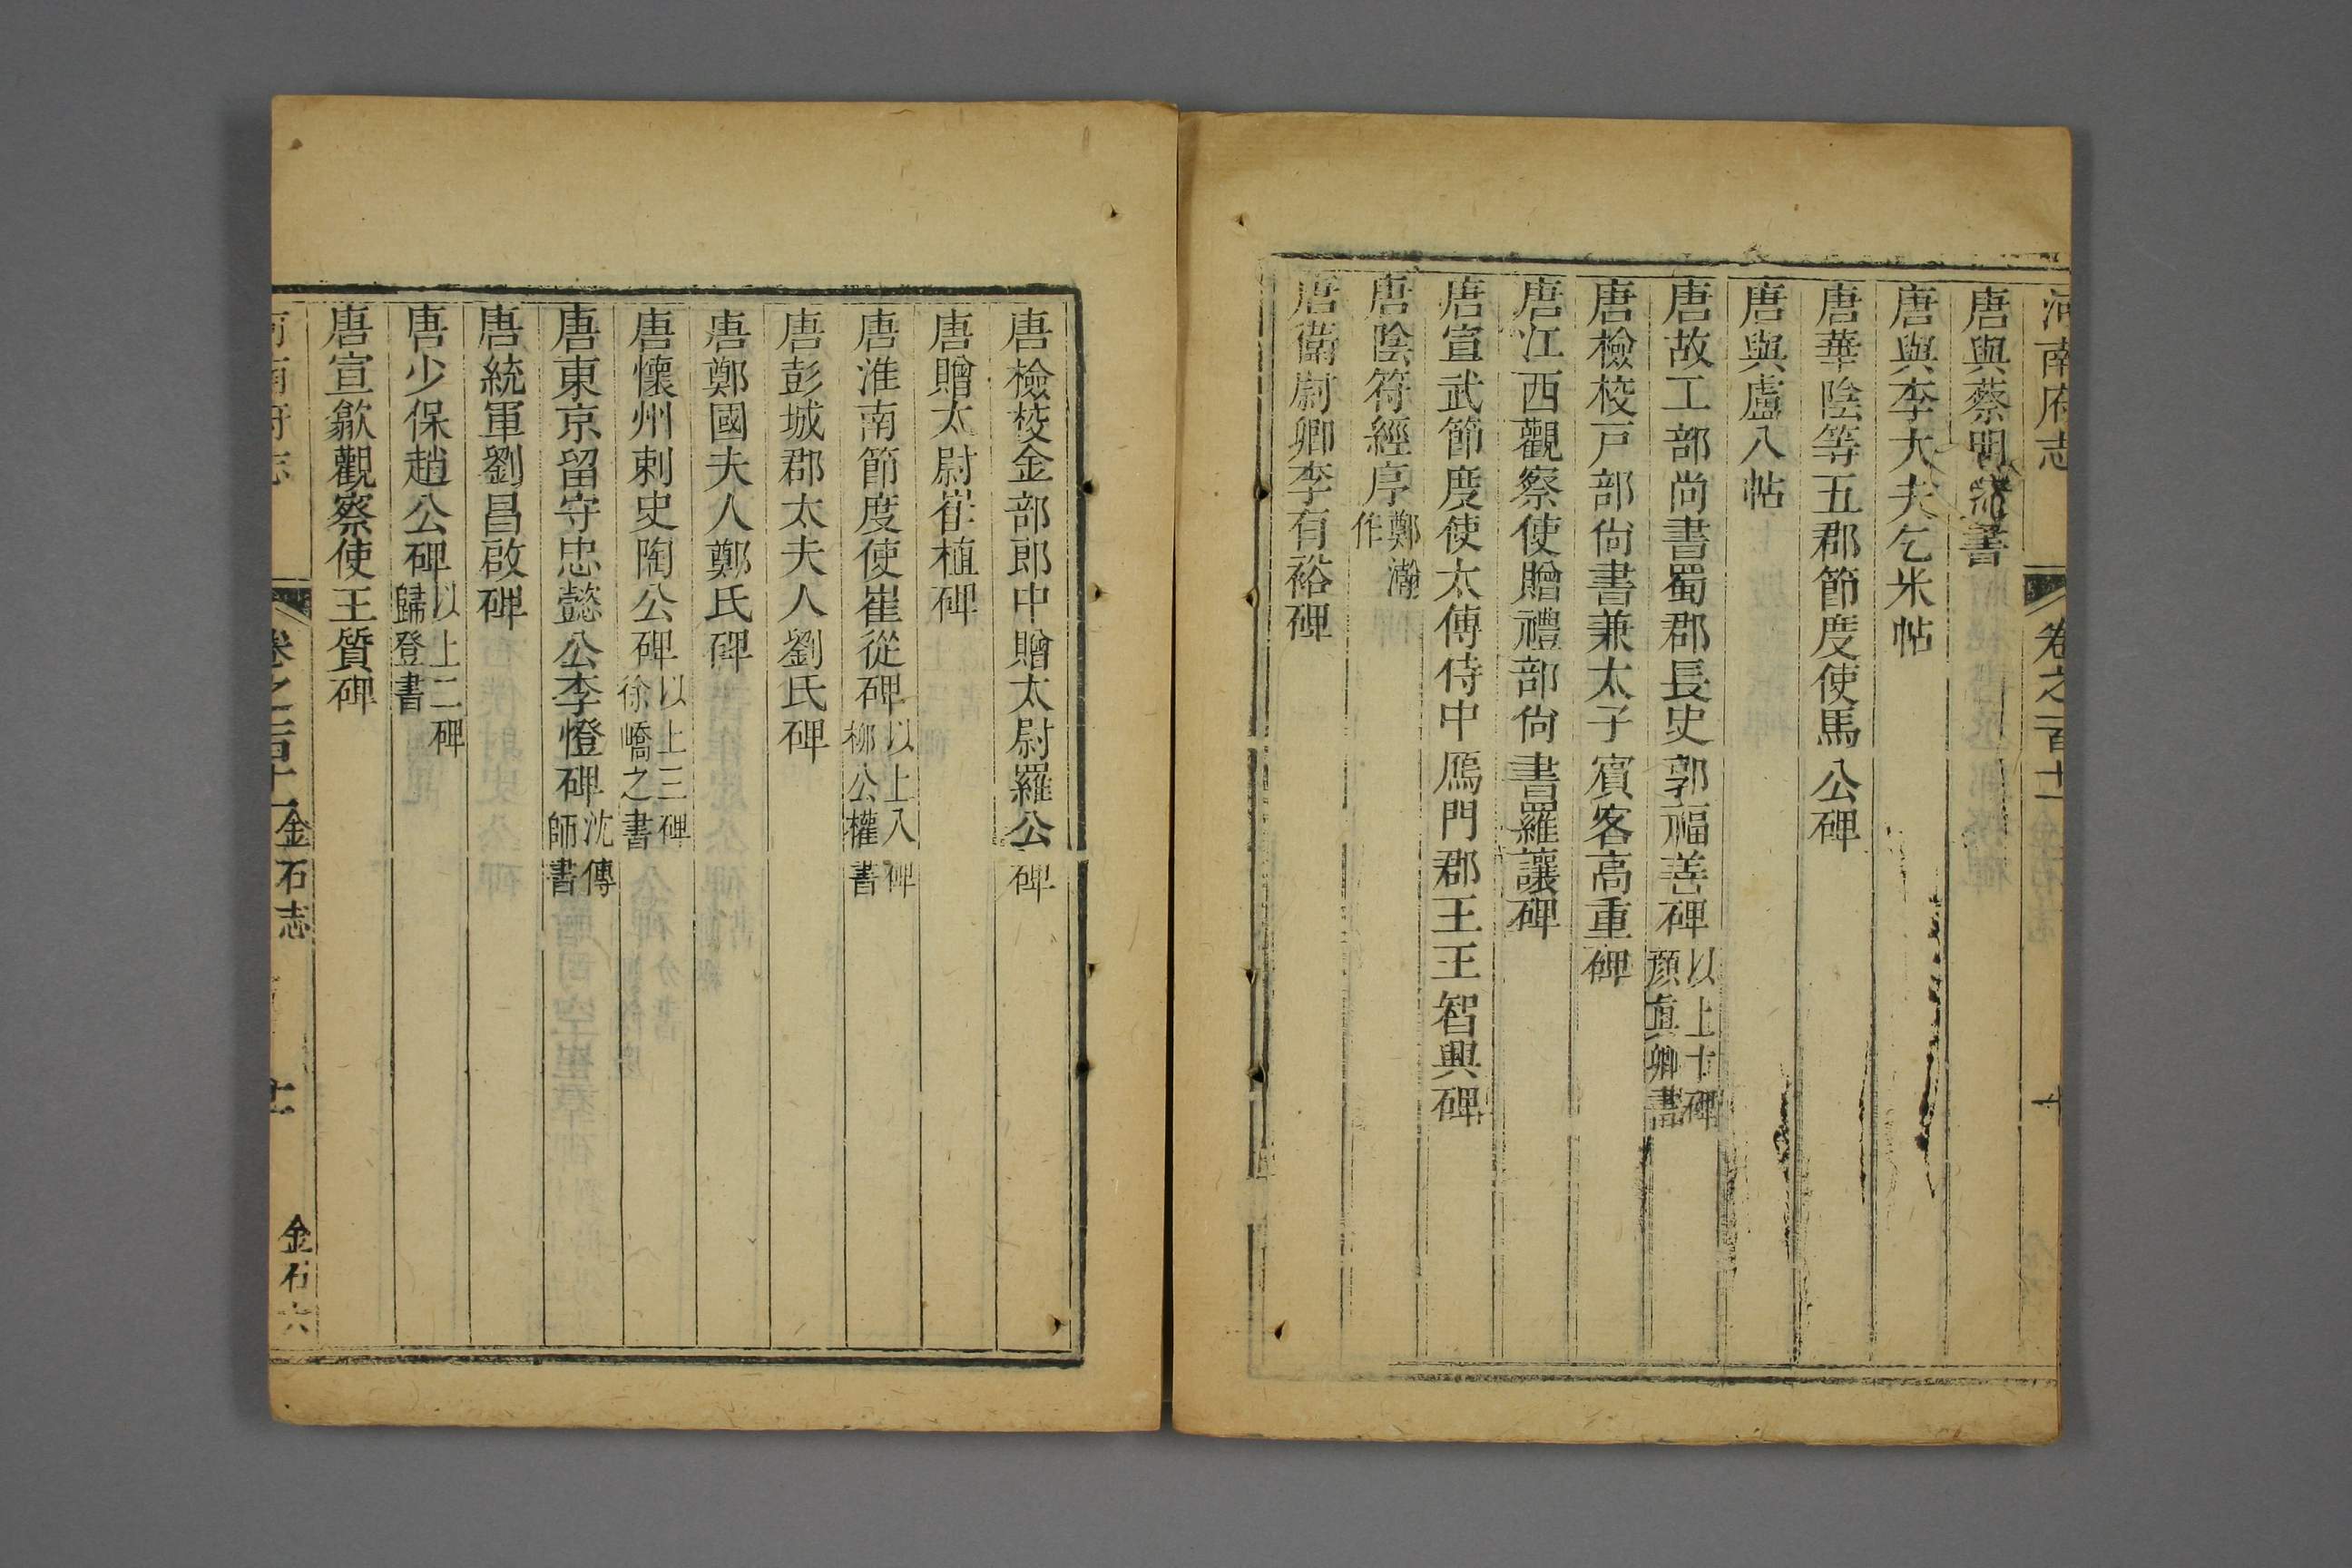 河南府志 卷之一百十一 金石志 十
唐與蔡明遠書
唐與李大夫乞米帖
唐華陰等五郡節度使馬公碑
唐與盧八帖
唐故工部尚書蜀郡長史郭福善碑以上十碑顏眞卿書
唐檢校戸部尙書兼太子賓客高重碑
唐江西觀察使贈禮部尙書羅讓碑
唐宣武節度使太傅侍中鴈門郡王王智興碑
唐陰符經序鄭瀚作
唐衛尉卿李有裕碑
唐檢校金部郎中贈太尉羅公碑
唐贈太尉崔植碑
唐淮南節度使崔從碑以上八碑柳公權書
唐彭城郡太夫人劉氏碑
唐鄭國夫人鄭氏碑
唐懷州刺史陶公碑以上三碑徐嶠之書
唐東京留守忠懿公李憕碑沈傳師書
唐統軍劉昌啟碑
唐少保趙公碑以上二碑歸登書
唐宣歙觀察使王質碑
河南府志 卷之一百十一 金石志 十一 金石六